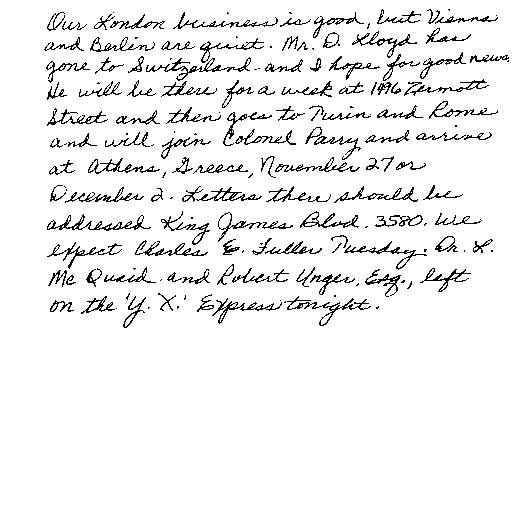 Our London business is good, but Vienna
and Berlin are quiet. Mr. D. Lloyd has
gone to Switzerland and I hope for good news.
He will be there for a week at 1496 Zermott
Street and then goes to Turin and Rome
and will join Colonel Parry and arrive
at Athens, Greece, November 27 or
December 2. Letters there should be
addressed King James Blvd. 3580. We
expect Charles E. Fuller Tuesday. Dr. L.
Mc Quaid and Robert Unger, Esq., left
on the 'Y. X.' Express tonight.